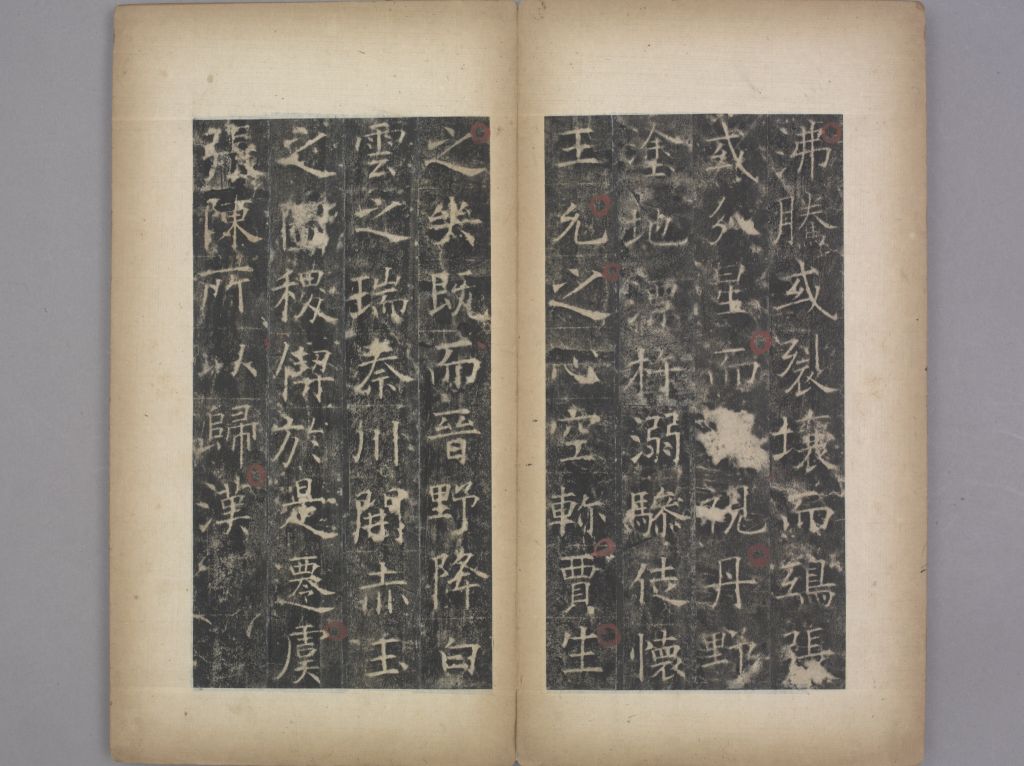 沸騰或裂壤而鴟張
或分星而視丹野
塗地溺驂使懷
王允之心空軫賈生
之哭既而晉野降白
雲之瑞秦川開赤玉
之圖稷偰於是遷虞
張陳所以歸漢